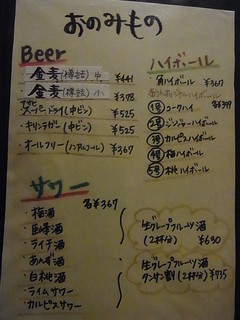 おのみもの
Beer
金麦(樽詰)中 ¥441
金麦(樽詰)小 ¥378
スーパードライ(中ビン) ¥525
キリンラガー(中ビン) ¥525
オールフリー(ノンアルコール) ¥367
ハイボール
角ハイボール ¥367
各¥399
1号 コークハイ
2号 ジンジャーハイボール
3号 カルピスハイボール
4号 梅ハイボール
5号 桃ハイボール
サワー
各¥367
・梅酒
・巨峰酒
・ライチ酒
・あんず酒
・白桃酒
・ライムサワー
・カルピスサワー
生グレープフルーツ酒
(2杯分) ¥630
生グレープフルーツ酒
タンサン割(2杯分) ¥735